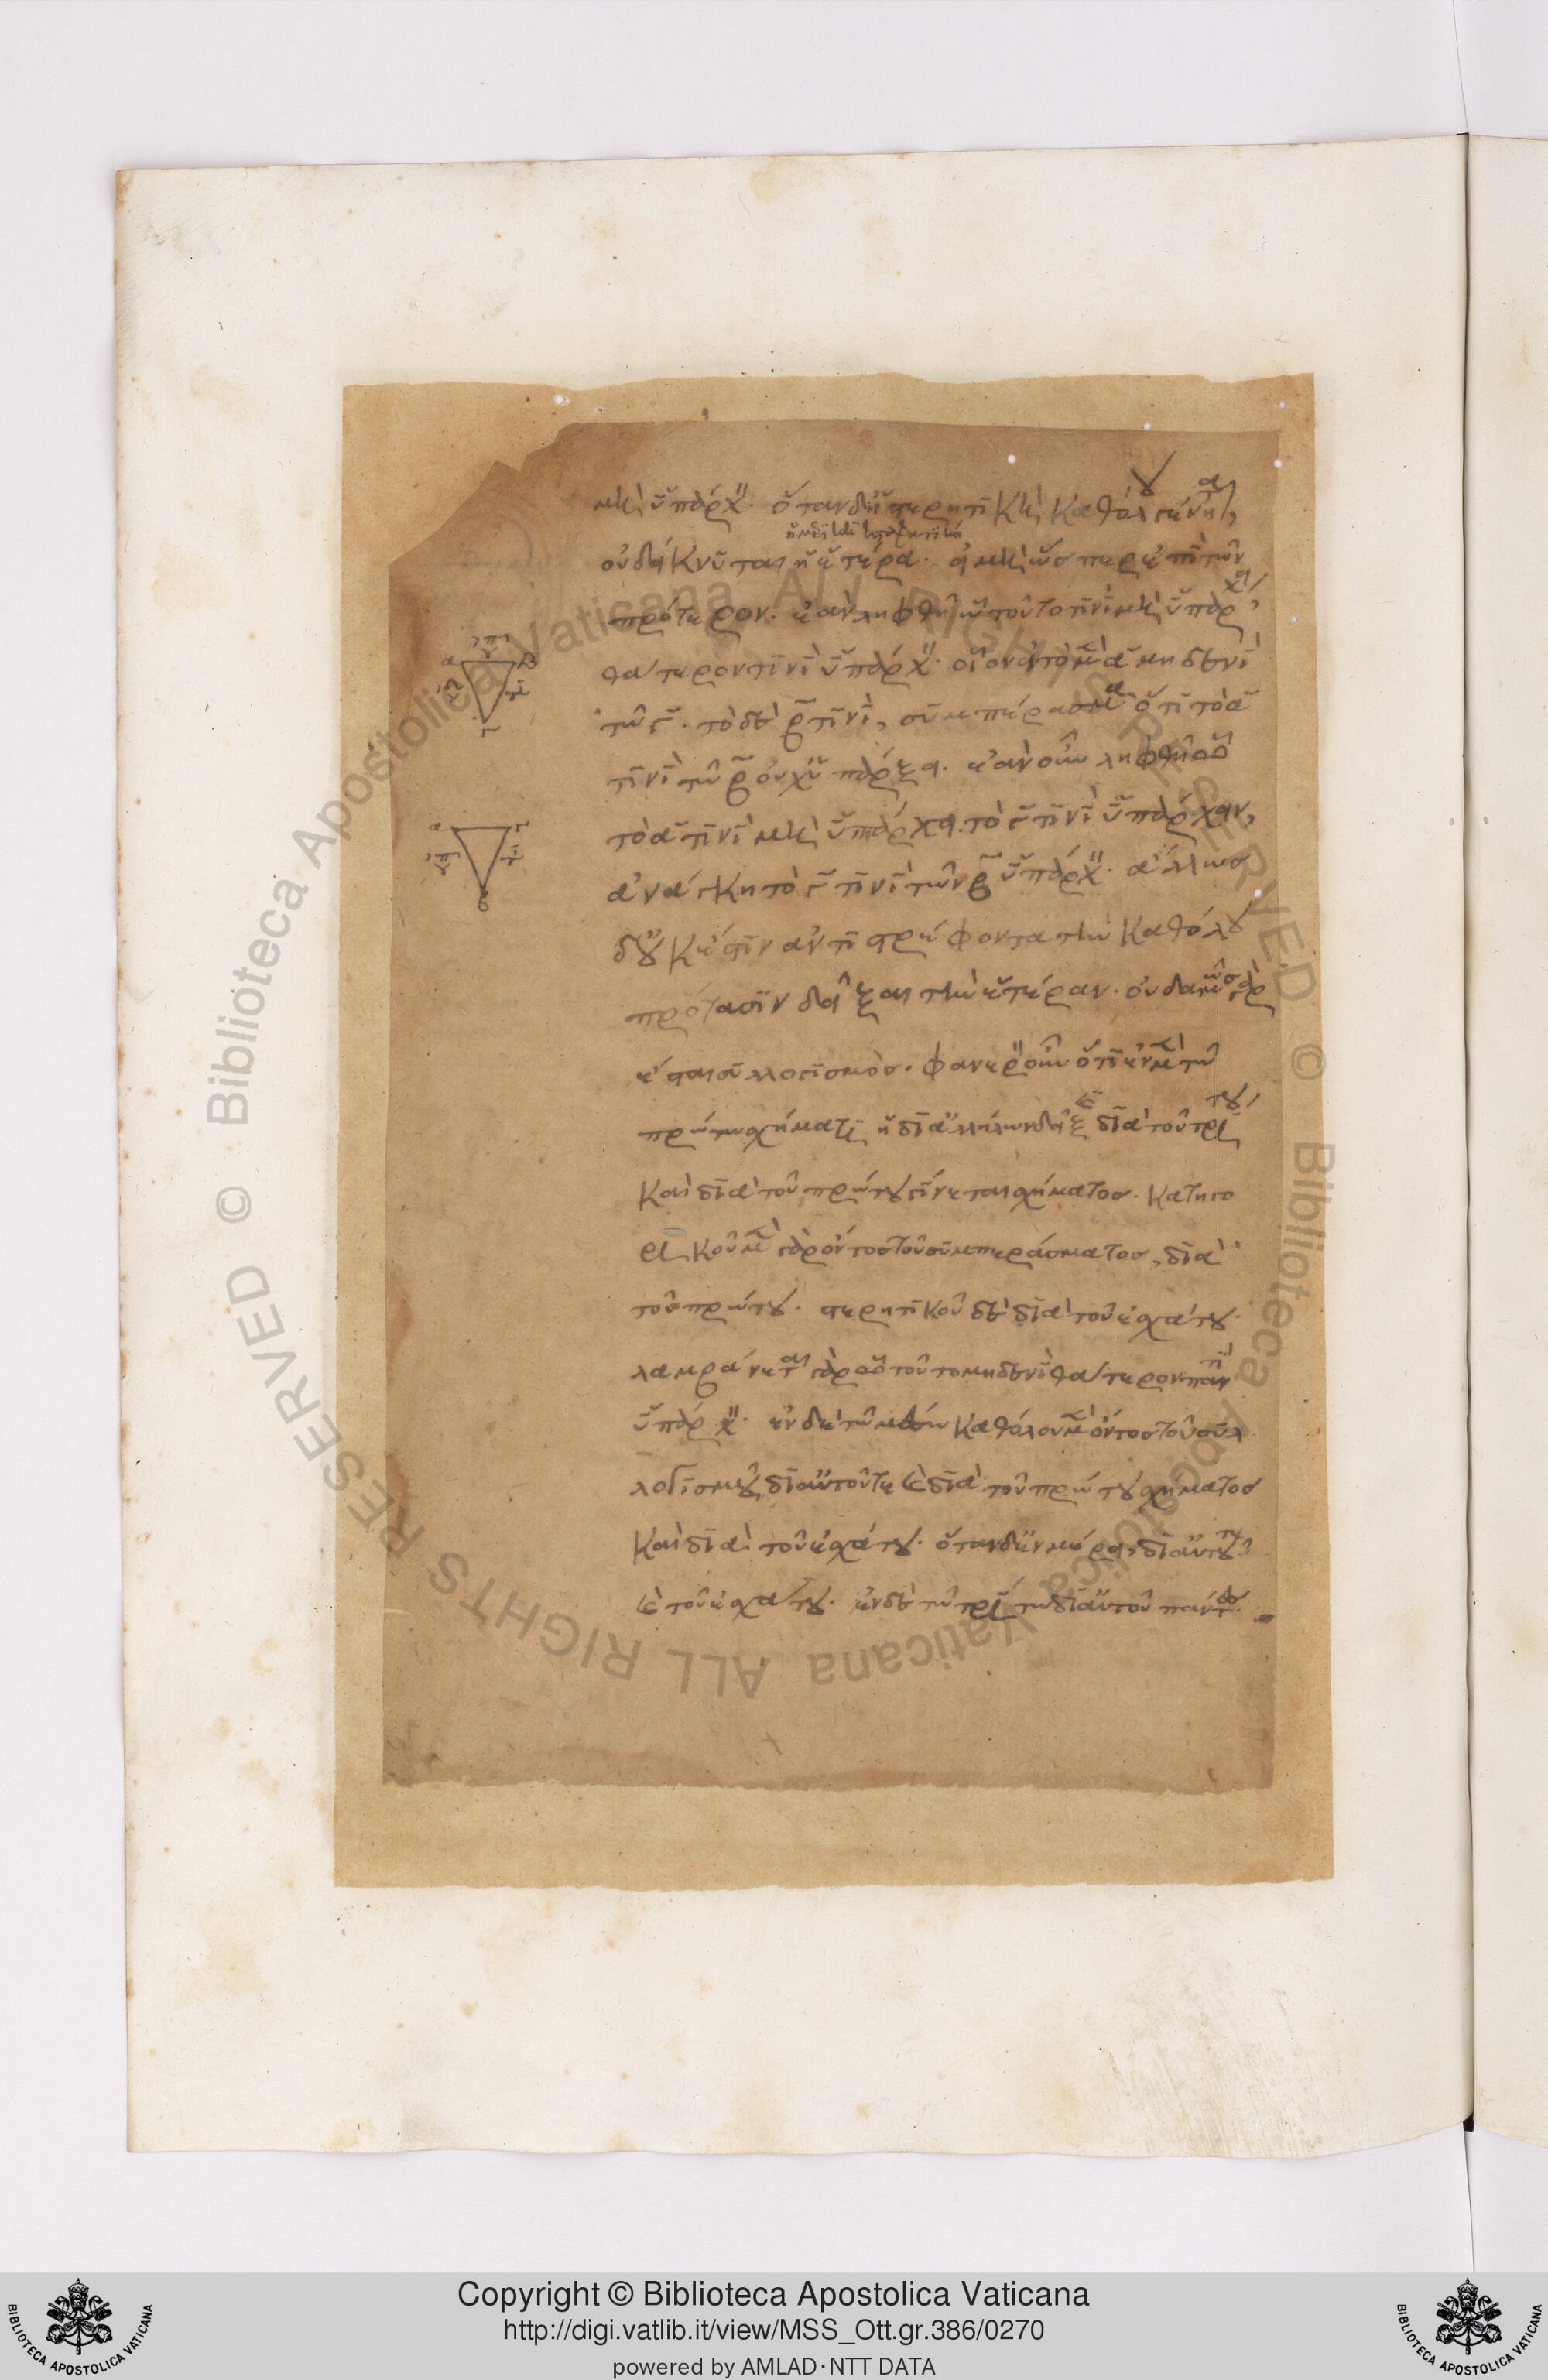 μὴ ὑπάρχῃ. ὅταν δ' ἡ στερητικὴ καθόλου γένηται,
ἡ μερικὴ καταφατικὴ
οὐ δείκνυται ἡ ἑτέρα. εἰ μὴ ὥσπερ ἐπὶ τῶν
πρότερον. ἐὰν ληφθῇ ᾧ τοῦτο τινὶ μὴ ὑπάρχει,
θάτερον τινὶ ὑπάρχῃ. οἷον εἰ τὸ μὲν α μηδενὶ
τῶ γ. τὸ δὲ β τινὶ, συμπέρασμα ὅτι τὸ α
τινὶ τῶ β οὐχ ὑπάρξει. ἐὰν οὖν ληφθῇ ᾧ
τὸ α τινὶ μὴ ὑπάρχει. τὸ γ τινὶ ὑπάρχειν,
ἀνάγκη τὸ γ τινὶ τῶν β ὑπάρχῃ. ἄλλως
δ' οὐκ ἔστιν ἀντιστρέφοντα τὴν καθόλου
πρότασιν δεῖξαι τὴν ἑτέραν. οὐδαμῶς γὰρ
ἔσται συλλογισμός. φανερὸν οὖν ὅτι ἐν μὲν τῶ
πρώτω σχήματι ἡ δι' ἀλλήλων δεῖξις διὰ τοῦ τρίτου
καὶ διὰ τοῦ πρώτου γίνεται σχήματος. κατηγο
ρικοῦ μὲν γὰρ ὄντος τοῦ συμπεράσματος, διὰ
τοῦ πρώτου. στερητικοῦ δὲ διὰ τοῦ ἐσχάτου.
λαμβάνεται γὰρ ᾧ τοῦτο μηδενὶ θάτερον παντὶ
ὑπάρχῃ. ἐν δὲ τῶ μέσω καθόλου μὲν ὄντος τοῦ συλ
λογισμοῦ, δι' αὐτοῦ τε καὶ διὰ τοῦ πρώτου σχήματος
καὶ διὰ τοῦ ἐσχάτου. ὅταν δ' ἐν μέρει, δι' αὐτοῦ τε
καὶ τοῦ ἐσχάτου. ἐν δὲ τῶ τρίτω δι' αὐτοῦ πάντες.
α β
γ
α γ
β
Copyright © Biblioteca Apostolica Vaticana
http://digi.vatlib.it/view/MSS_Ott.gr.386/0270
powered by AMLAD·NTT DATA
BIBLIOTECA APOSTOLICA VATICANA
BIBLIOTECA APOSTOLICA VATICANA
Biblioteca Apostolica Vaticana ALL RIGHTS RESERVED © Biblioteca Apostolica Vaticana ALL RIGHTS RESERVED ©